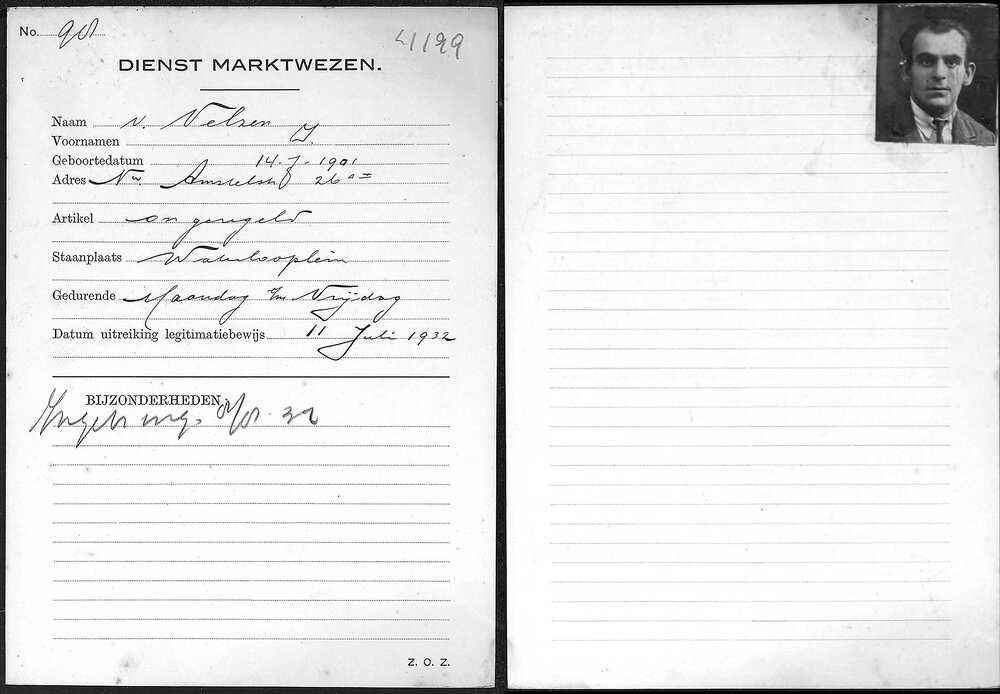 No. 98
41199
DIENST MARKTWEZEN.
Naam v. Velzen
Voornamen J.
Geboortedatum 14-7-1901
Adres Nw. Amstelstr 26 a II
Artikel ongeregeld
Staanplaats Waterlooplein
Gedurende Maandag t/m Vrijdag
Datum uitreiking legitimatiebewijs 11 Juli 1932
BIJZONDERHEDEN
32
Z. O. Z.